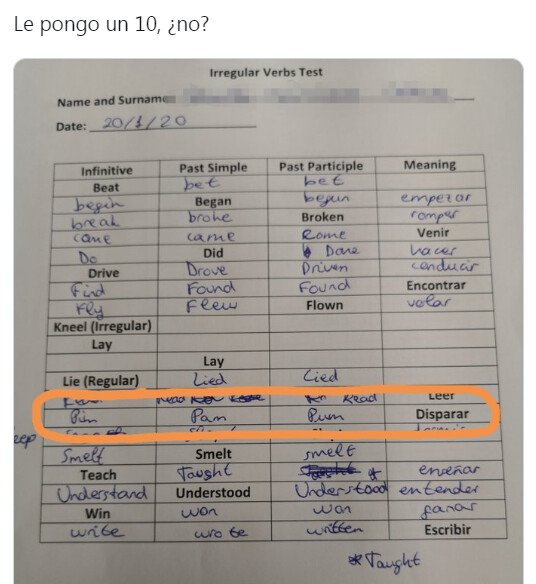 Le pongo un 10, ¿no?
Irregular Verbs Test
Name and Surname
Date: 20/1/20
Infinitive Past Simple Past Participle Meaning
Beat bet bet
begin Began begun empezar
break broke Broken romper
come came Come Venir
Do Did Done hacer
Drive Drove Driven conducir
Find Found Found Encontrar
Fly Flew Flown volar
Kneel (Irregular)
Lay
Lay
Lie (Regular) Lied Lied
Read Read Leer
Pim Pam Pum Disparar
eep
Smelt Smelt smelt
Teach Taught enseñar
Understand Understood Understood entender
Win won won ganar
write wrote written Escribir
* Taught